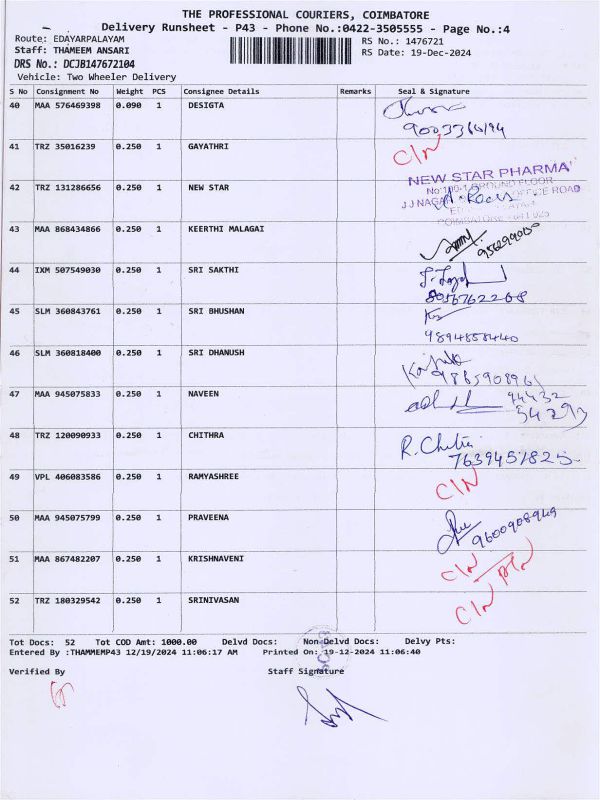 THE PROFESSIONAL COURIERS, COIMBATORE
Delivery Runsheet - P43 - Phone No.:0422-3505555 - Page No.:4
Route: EDAYARPALAYAM
RS No.: 1476721
Staff: THAMEEM ANSARI
RS Date: 19-Dec-2024
DRS No.: DCJB147672104
Vehicle: Two Wheeler Delivery
S No Consignment No Weight PCS Consignee Details Remarks Seal & Signature
40 MAA 576469398 0.090 1 DESIGTA
41 TRZ 35016239 0.250 1 GAYATHRI C/N
NEW STAR PHARMA
42 TRZ 131286656 0.250 1 NEW STAR
43 MAA 868434866 0.250 1 KEERTHI MALAGAI
44 IXM 507549030 0.250 1 SRI SAKTHI
45 SLM 360843761 0.250 1 SRI BHUSHAN
9894858440
46 SLM 360818400 0.250 1 SRI DHANUSH
47 MAA 945075833 0.250 1 NAVEEN
94432
54293
48 TRZ 120090933 0.250 1 CHITHRA R. Chitra
7639457825
49 VPL 406083586 0.250 1 RAMYASHREE C/N
50 MAA 945075799 0.250 1 PRAVEENA
9600908949
51 MAA 867482207 0.250 1 KRISHNAVENI C/N
52 TRZ 180329542 0.250 1 SRINIVASAN C/N
Tot Docs: 52 Tot COD Amt: 1000.00 Delvd Docs: Non-Delvd Docs: Delvy Pts:
Entered By :THAMMEMP43 12/19/2024 11:06:17 AM Printed On: 19-12-2024 11:06:40
Verified By Staff Signature